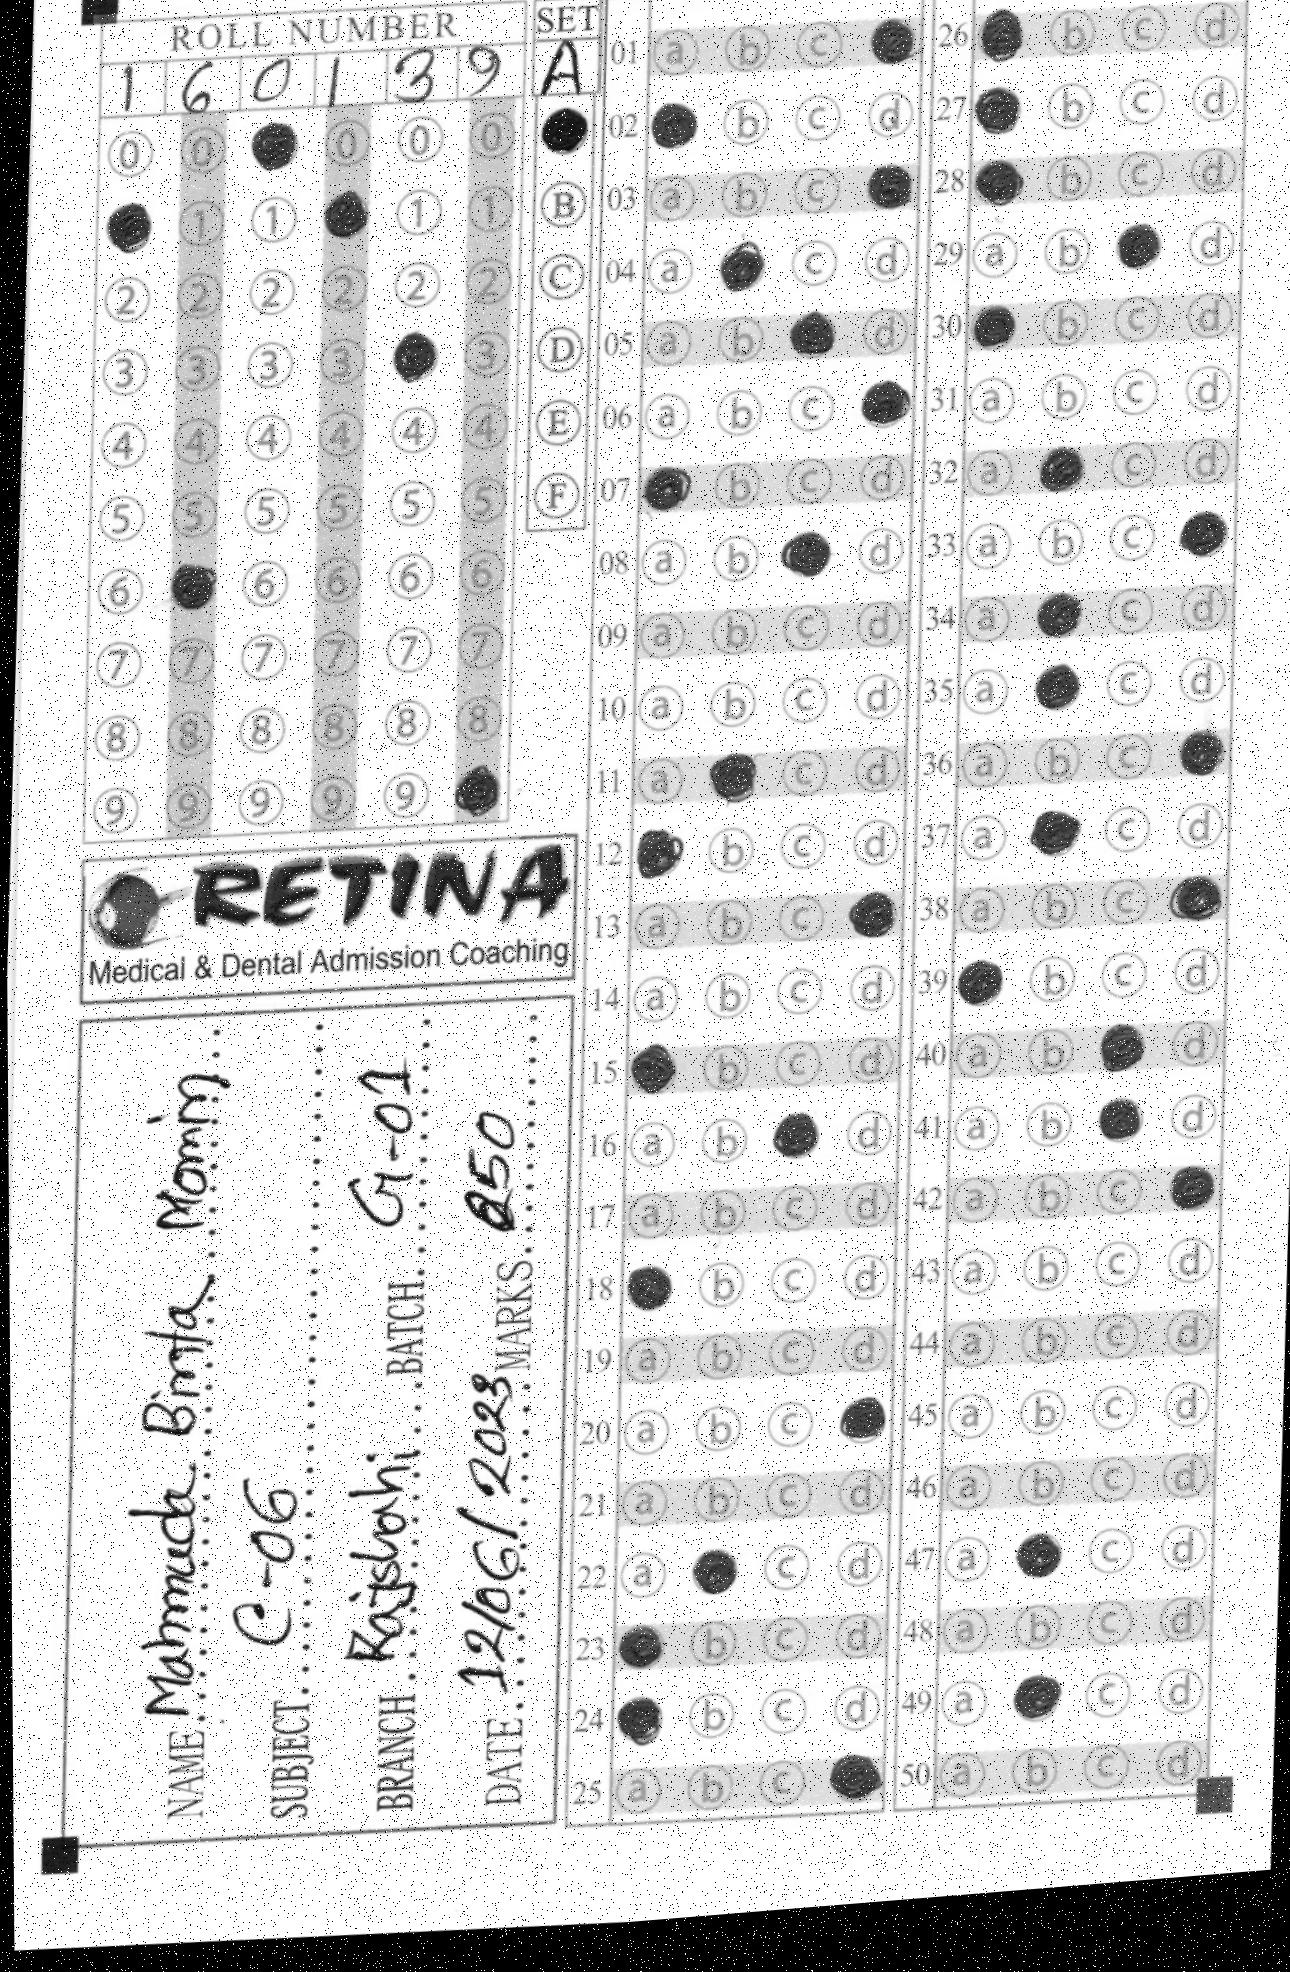 ROLL NUMBER
1 6 0 1 3 9
0 0 0 0 0
1 1 1 1
2 2 2 2 2 2
3 3 3 3 3
4 4 4 4 4 4
5 5 5 5 5 5
6 6 6 6 6
7 7 7 7 7 7
8 8 8 8 8 8
9 9 9 9 9
SET
A
B
C
D
E
F
RETINA
Medical & Dental Admission Coaching
NAME Mahmuda Binta Momin
SUBJECT C-06
BRANCH Rajshahi BATCH G-01
DATE 12/06/2023 MARKS 250
01 a b c
02 b c d
03 a b c
04 a c d
05 a b d
06 a b c
07 b c d
08 a b d
09 a b c d
10 a b c d
11 a c d
12 b c d
13 a b c
14 a b c d
15 b c d
16 a b d
17 a b c d
18 b c d
19 a b c d
20 a b c
21 a b c d
22 a c d
23 b c d
24 b c d
25 a b c
26 b c d
27 b c d
28 b c d
29 a b d
30 b c d
31 a b c d
32 a c d
33 a b c
34 a c d
35 a c d
36 a b c
37 a c d
38 a b c
39 b c d
40 a b d
41 a b d
42 a b c
43 a b c d
44 a b c d
45 a b c d
46 a b c d
47 a c d
48 a b c d
49 a c d
50 a b c d